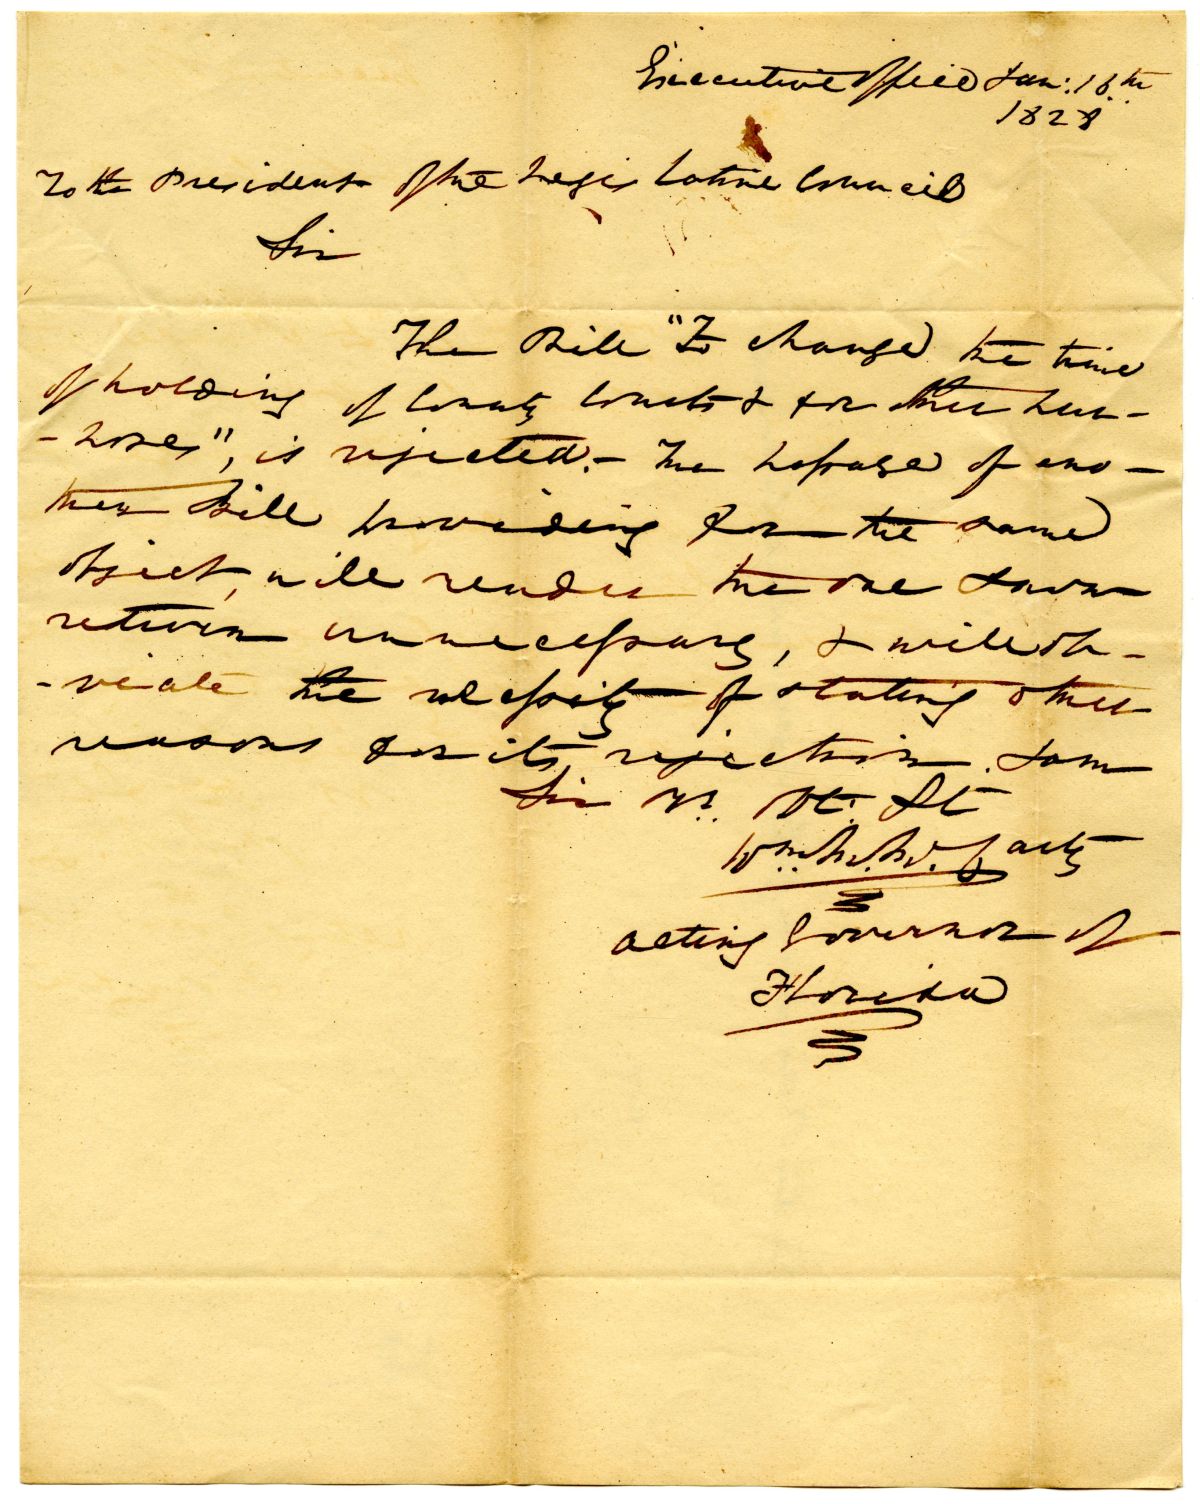 Executive Office Jan: 16th
1828
To the President of the Legislative Council
Sir
The Bill "To change the time
of holding of County Courts & for other pur-
-poses", is rejected. - The passage of ano-
ther Bill providing for the same
object, will render the one I now
return unnecessary, & will ob-
-viate the necessity of stating other
reasons for its rejection. I am
Sir Yr. Ob. St
Wm. M. McCarty
Acting Governor of
Florida